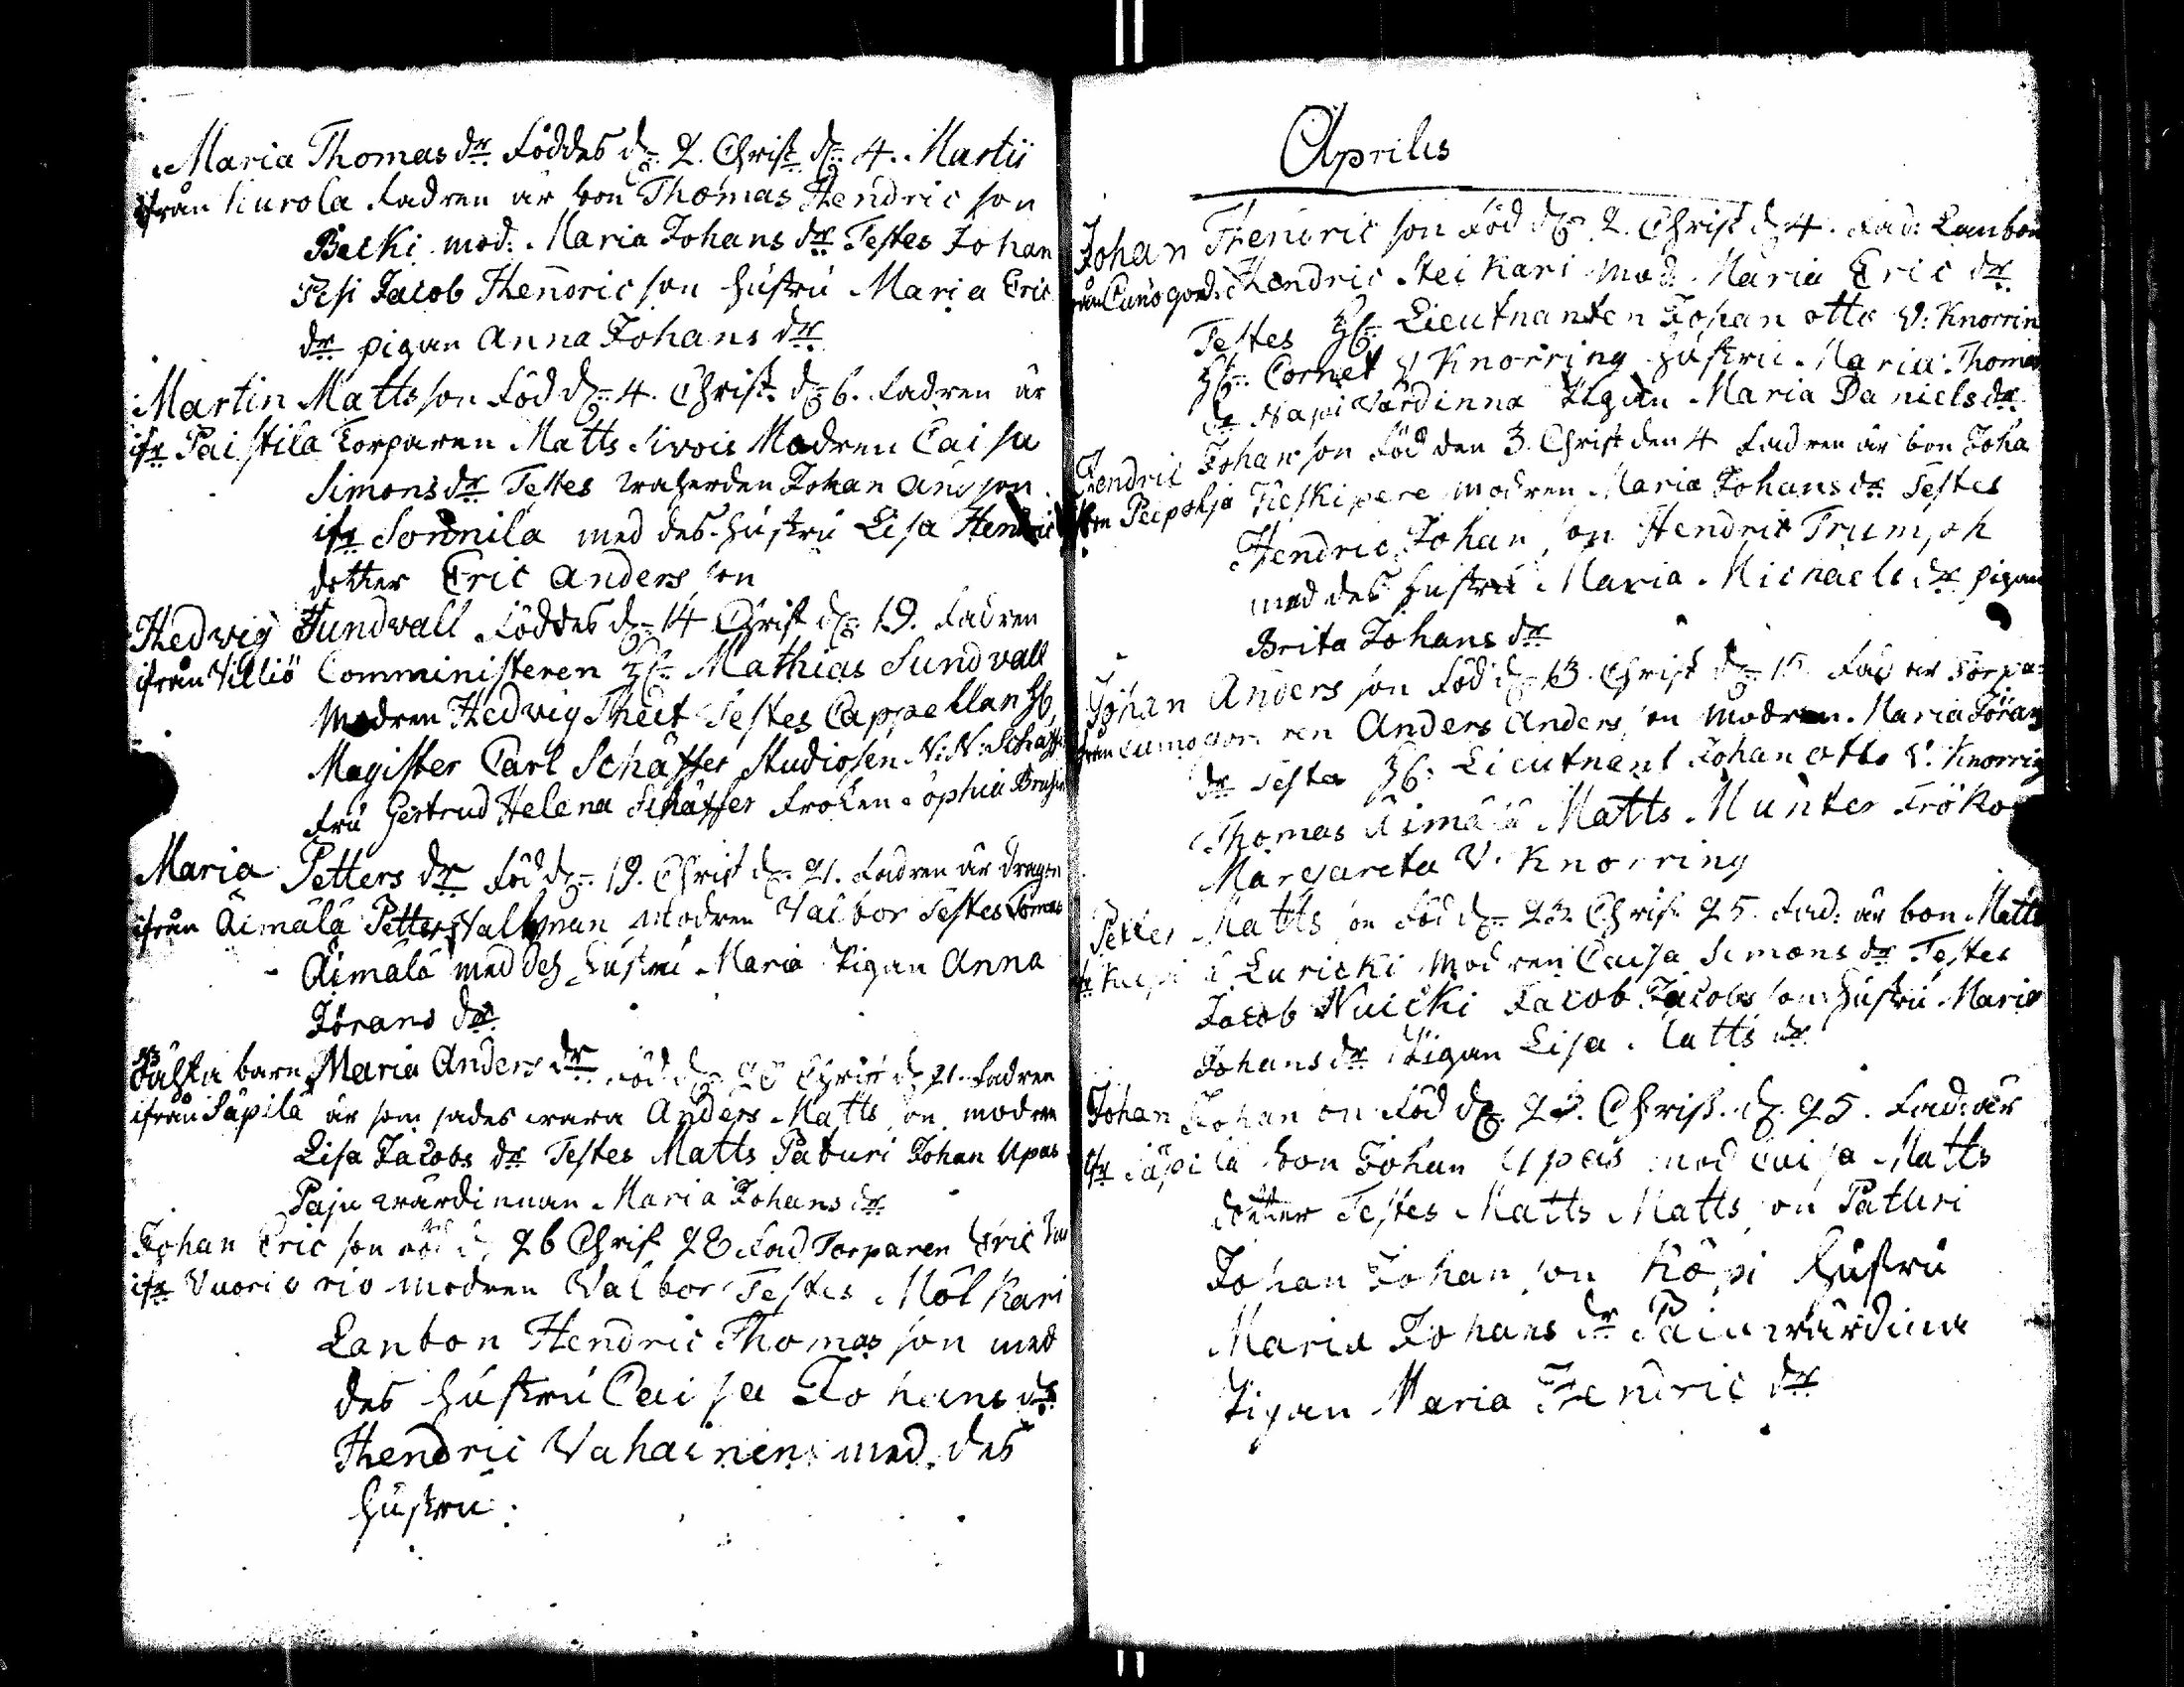 Maria Thomas dr. Föddes d. 2. Christ d. 4. Martii
ifrån Kurola Fadren är bon Thomas Hendric son
Becki mod: Maria Johans dr. Testes Johan
Pesi Jacob Hendric son hustru Maria Eric
dr. pigan Anna Johans dr.
Martin Matts son Föd d. 4. Christ. d. 6. Fadren är
ifr Paistila Torparen Matts Sivoi Modren Caisa
Simons dr. Testes Johan And son
ifr Sonnila med des hustru Lisa Hendric
dotter Eric Anders son
Hedvig Sundvall Föddes d. 14 Christ d. 19. Fadren
ifrån Villiö Comministeren H. Mathias Sundvall
Modren Hedvig Testes Cappellan H.
Magister Carl Schäffer Studiosen N: N: Schäff
Fru Gertrud Helena Schäffer Fröken Sophia
Maria Petters dr Föd d. 19. Christ d. 21. Fadren är dragon
ifrån Äimälä Petter Vallman Modren Valbor Testes Tomas
Äimälä med des hustru Maria Pigan Anna
Jörans dr.
barn Maria Anders dr. Föd d. 20 Christ d 21. Fadren
ifrån Säpilä är som sades wara Anders Matts son modren
Lisa Jacobs dr Testes Matts Paturi Johan Upas
Paju wärdinnan Maria Johans dr
Johan Eric son föd d. 26 Christ 28 Fad Torparen Eric
ifr Vuoriorio modren Valbor Testes Mölkari
Lanbon Hendric Thomas son med
des hustru Caisa Johans dr
Hendric Vahainen med des
hustru.
Aprilis
Johan Hendric son Föd d. 2. Christ d 4. Fad: Lanbon
från Cumogord: Hendric Steikari mod. Maria Eric dr.
Testes H. Lieutnanten Johan otto V: Knorrin
H. Cornet V Knorring hustru Maria Thomas
dr Napi Värdinna Pigan Maria Daniels dr.
Hendric Johan son Föd den 3. Christ den 4 Fadren är bon Joha
Peipohja Kieskipere modren Maria Johans dr Testes
Hendric Johan son Hendric Trumph
med des hustru Maria Michaels dr pigan
Brita Johans dr
Johan Anders son Föd d. 13. Christ d. 15. Fadren Torpa=
från Cumogor ren Anders Anders son Modren Maria Jöran
dr Testes H: Lieutnant Johan otto V: Knorring
Thomas Äimälä Matts Munter Fröken
Margareta V. Knorring
Petter Matts son Föd d. 23 Chris. 25. Fad: är bon Matts
Luricki Modren Caisa Simons dr Testes
Jacob Nuicki Jacob Jacobs son hustru Maria
Johans dr Pigan Lisa Matts dr
Johan Johan son Föd d. 23. Christ. d. 25. Fad: är
ifr Säpilä bon Johan Upas mod Caisa Matts
dotter Testes Matts Matts son Paturi
Johan Johan son Köpi hustru
Maria Johans dr Paiu wärdina
Pigan Maria Hendric dr